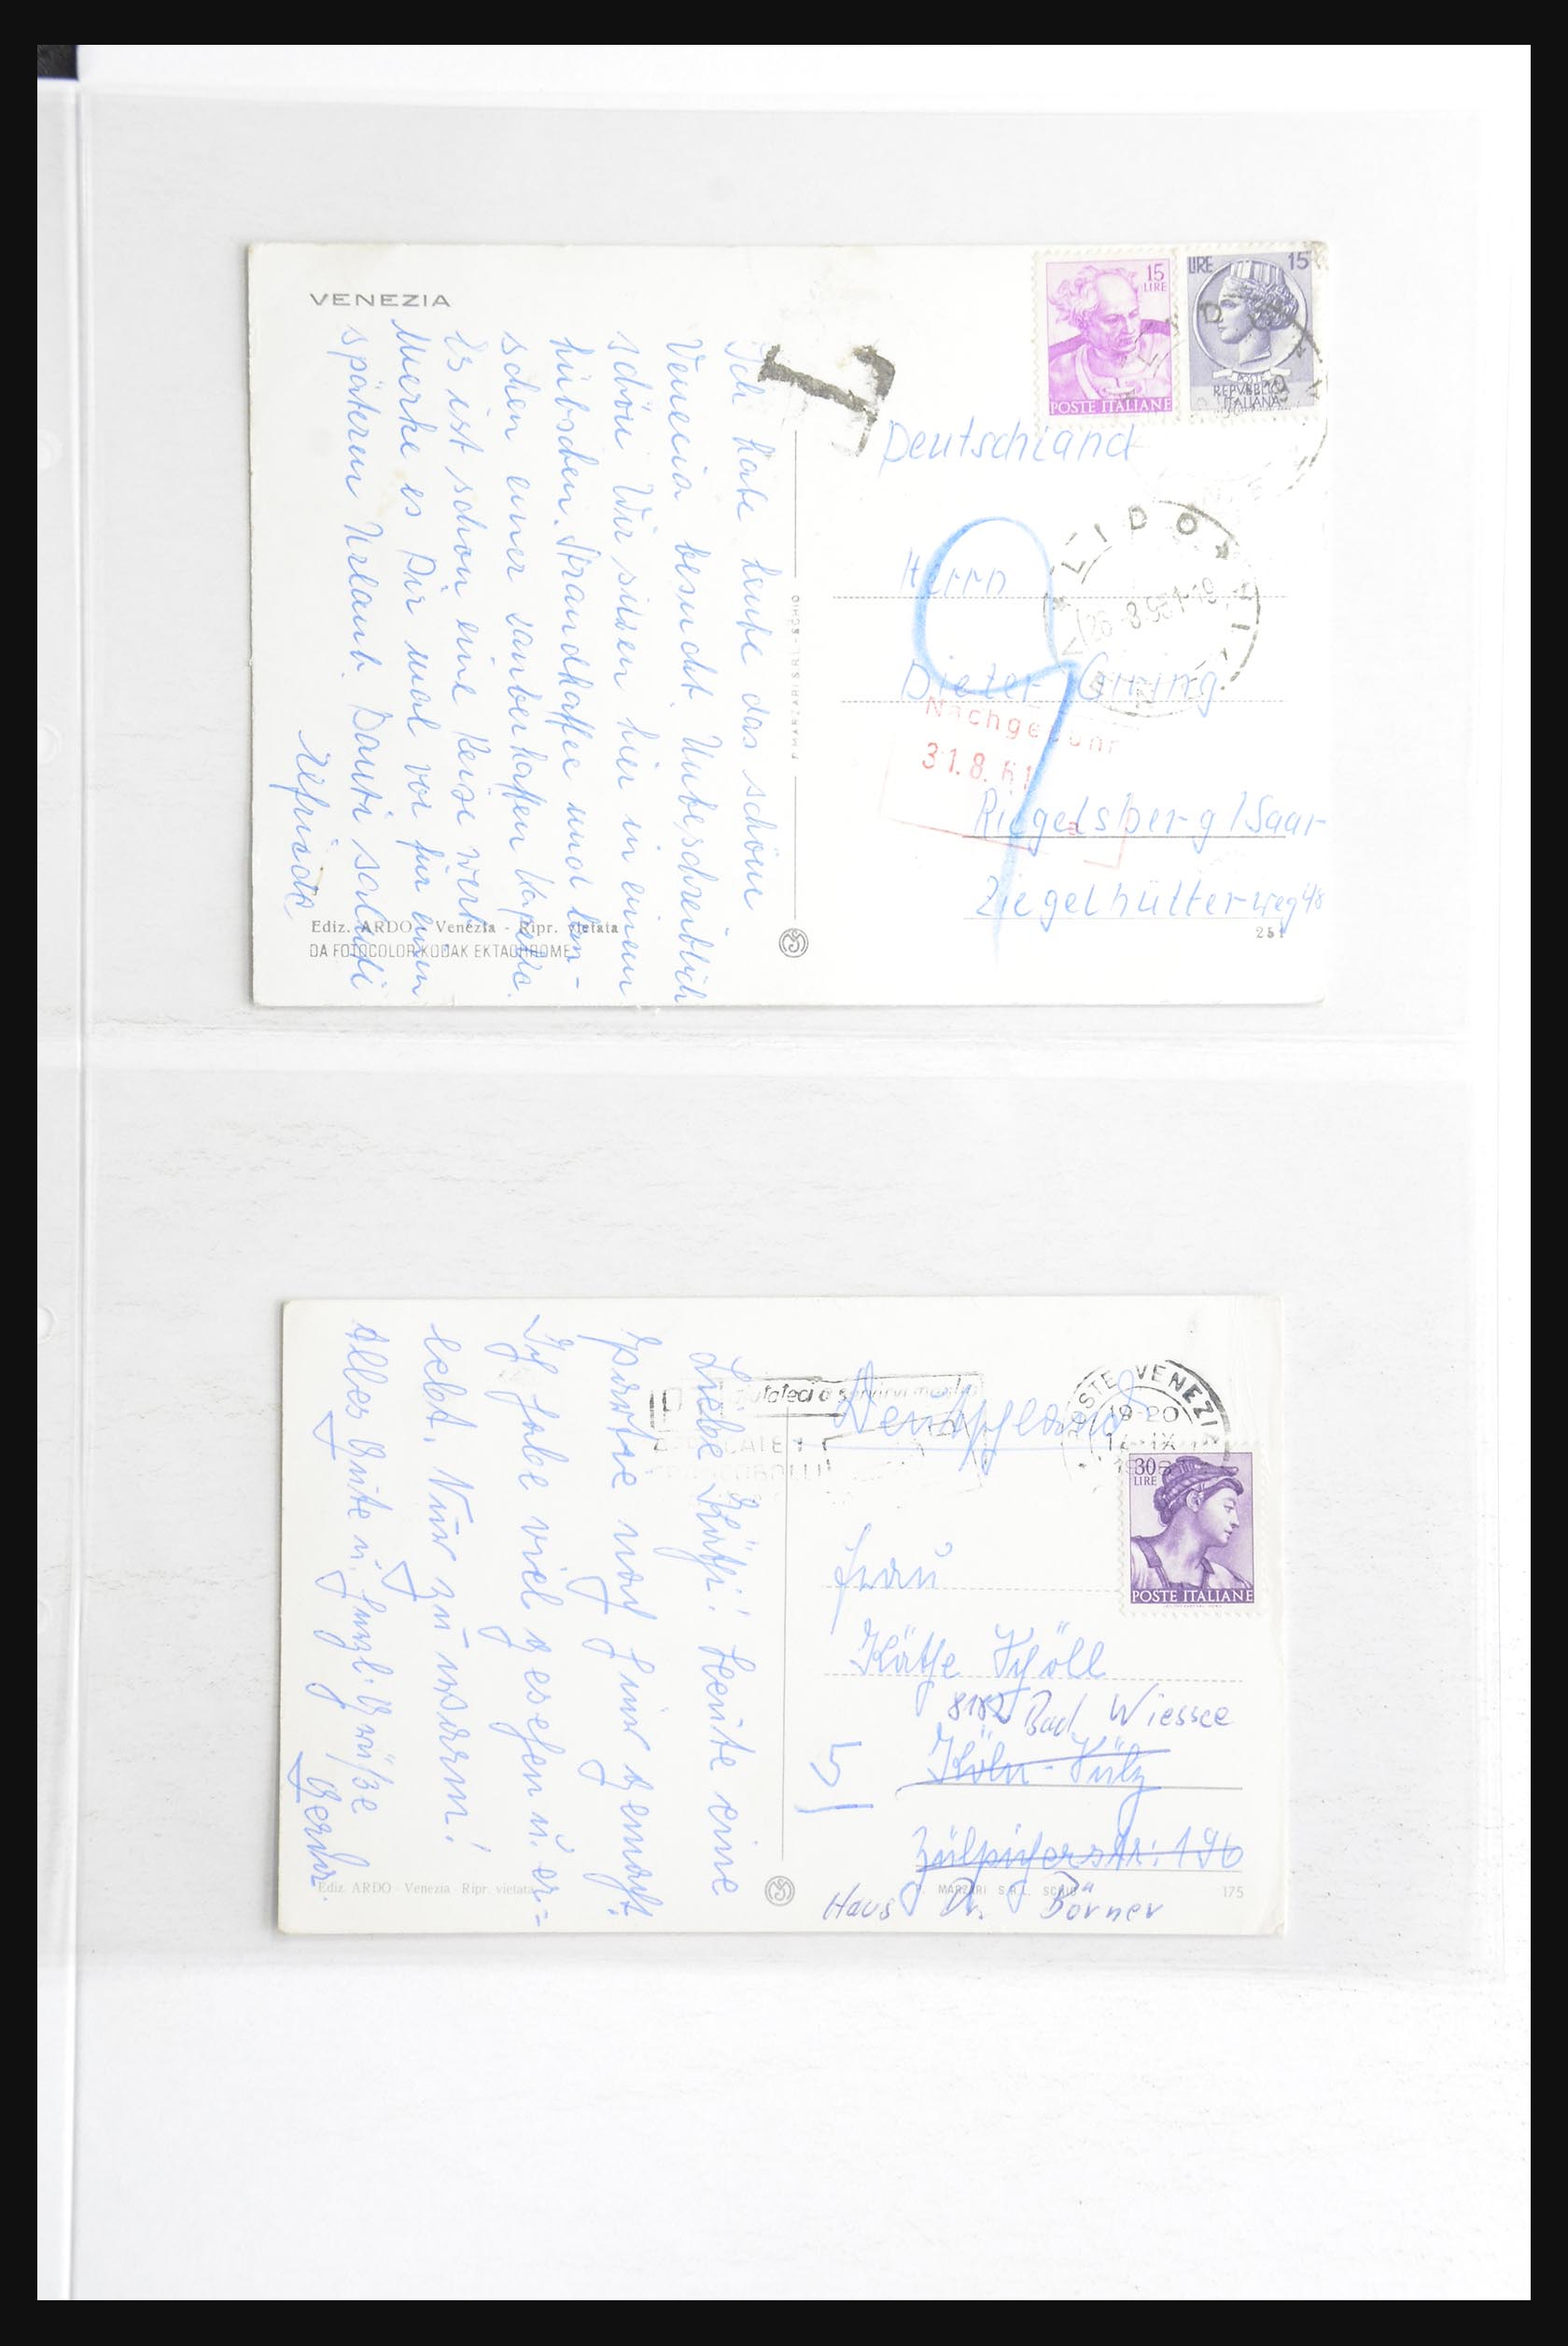 VENEZIA
Ich habe heute das schöne
Venecia besucht. Unbeschreiblich
schön. Wir sitzen hier in einem
hübschen Strandkaffee und lau-
schen einer sauberhaften Kapelle.
Es ist schon eine Reise wert.
Merke es Dir mal vor für einen
späteren Urlaub.
Elfriede
Ediz. ARDO - Venezia - Ripr. vietata
DA FOTOCOLOR KODAK EKTACHROME
MARZARI S.R.L. - SCHIO
T
15
LIRE
POSTE ITALIANE
LIRE 15
POSTE
REPVBBLICA
ITALIANA
LIDO
Deutschland
Herrn
Dieter
Nachgebühr
31.8.61
Riegelsberg/Saar
Ziegelhütterweg
251
Liebe Käthe! Heute eine
noch hier gemacht.
Ich habe viel gesehen u. er-
lebt. Nur zu warm!
Alles Gute u. herzl. Grüße
Gerda.
Ediz. ARDO - Venezia - Ripr. vietata
MARZARI S.R.L. SCHIO
175
POSTE VENEZIA
19-20
30
LIRE
POSTE ITALIANE
Deutschland
Frau
Käthe Schöll
8182 Bad Wiessee
Köln - Sülz
Zülpicherstr. 196
Haus Dr. Börner